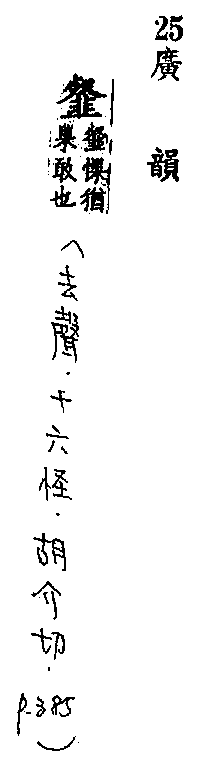 25 廣韻
韰 韰惈猶
果敢也
（去聲．十六怪．胡介切．p.385）